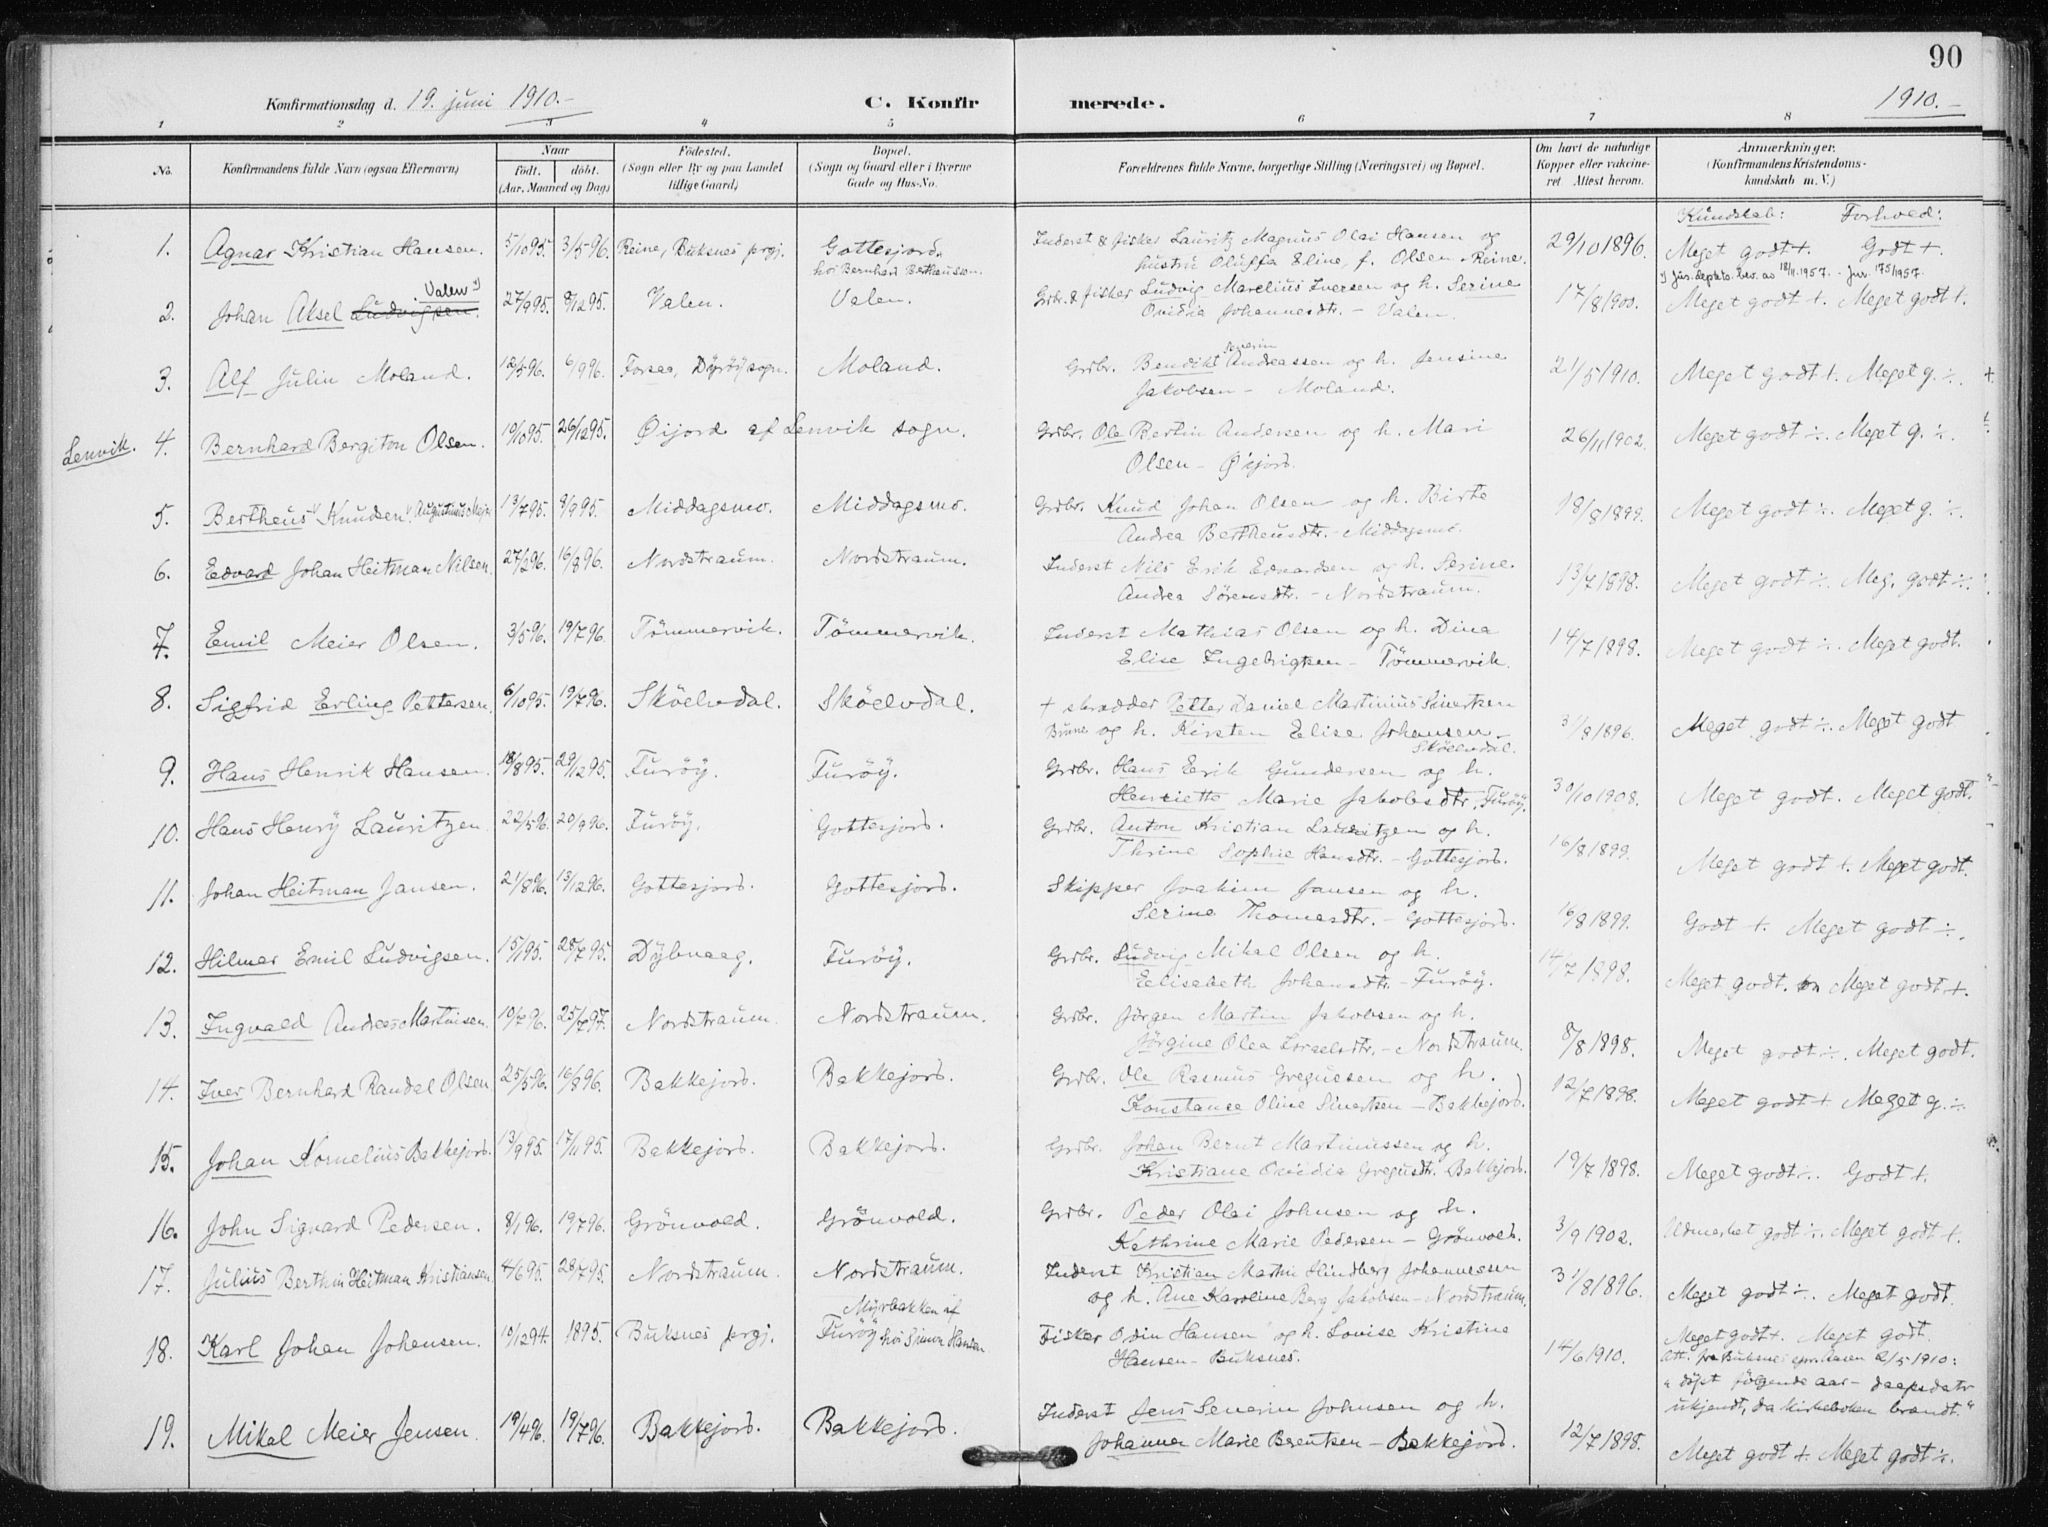 90
Konfirmationsdag d. 19. juni 1910.-
C. Konfirmerede.
1910.-
1 2 3 4 5 6 7 8
No.
Konfirmandens fulde Navn (ogsaa Efternavn)
Naar
født. døbt.
(Aar, Maaned og Dag)
Fødested.
(Sogn eller By og paa Landet
tillige Gaard)
Bopæl.
(Sogn og Gaard eller i Byerne
Gade og Hus-No.
Forældrenes fulde Navne, borgerlige Stilling (Næringsvei) og Bopæl.
Om havt de naturlige
Kopper eller vakcine-
ret. Attest herom.
Anmærkninger.
(Konfirmandens Kristendoms-
kundskab m. V.)
Kundskab: Forhold:
1. Agnar Kristian Hansen. 5/10 95. 3/5 96. Reine, Buksnes prgj. Gottesjord.
hos Bernhard Berthausen.
Inderst & fisker Lauritz Magnus Olai Hansen og
hustru Oluffa Eline, f. Olsen - Reine. 29/10 1896. Meget godt +. Godt +.
1) Jus.deptets. bev. av 18/11.1957. - Jnr. 175/1957.
2. Johan Aksel Ludvigsen. Valen 1) 27/9 95. 8/12 95. Valen. Valen.
Grbr. & fisker Ludvig Marelius Iversen og h. Serine
Ovidia Johannesdtr. - Valen. 17/8 1900. Meget godt +. Meget godt +.
3. Alf Julin Moland. 12/5 96. 6/9 96. Forsaa, Dyrøy sogn. Moland.
Grdbr. Bendikt Severin Andreassen og h. Jensine
Jakobsen - Moland. 21/5 1910. Meget godt +. Meget g. ÷.
Lenvik. 4. Bernhard Bergiton Olsen. 19/10 95. 26/12 95. Øijord af Lenvik sogn.
Grdbr. Ole Bertin Andersen og h. Mari
Olsen - Øijord. 26/11 1902. Meget godt ÷. Meget g. ÷.
5. Bertheus Knudsen. Augustinus Meier 13/7 95. 8/9 95. Middagsmo. Middagsmo.
Grdbr. Knud Johan Olsen og h. Birte
Andrea Bertheusdtr. - Middagsmo. 18/8 1899. Meget godt ÷. Meget g. ÷.
6. Edvard Johan Heitman Nilsen. 27/2 96. 16/8 96. Nordstraum. Nordstraum.
Inderst Nils Erik Edvardsen og h. Serine
Andrea Sørensdtr. - Nordstraum. 13/7 1898. Meget godt ÷. Meg. godt ÷.
7. Emil Meier Olsen. 3/5 96. 19/7 96. Tömmervik. Tömmervik.
Inderst Mathias Olsen og h. Dina
Elise Ingebrigtsen - Tömmervik. 14/7 1898. Meget godt ÷. Meget godt.
8. Sigfrid Erling Pettersen 6/10 95. 19/7 96. Sköelvdal. Sköelvdal.
+ skrædder Petter Daniel Martinius Sivertsen
Binne og h. Kirsten Elise Johansen -
Sköelvdal. 31/8 1896. Meget godt ÷. Meget godt
9. Hans Henrik Hansen. 18/8 95. 29/12 95. Furöy. Furöy.
Grdbr. Hans Erik Gundersen og h.
Henriette Marie Jakobsdtr. Furöy. 30/10 1908. Meget godt. Meget godt.
10. Hans Henry Lauritzen 22/5 96. 20/9 96. Furöy. Gottesjord.
Grdbr. Anton Kristian Lauritzen og h.
Thrine Sophie Hansdtr. - Gottesjord. 16/8 1899. Meget godt +. Meget godt.
11. Johan Heitman Jansen. 21/8 96. 13/12 96. Gottesjord. Gottesjord.
Skipper Joakim Jansen og h.
Serine Thomasdtr. - Gottesjord. 16/8 1899. Godt +. Meget godt ÷.
12. Hilmar Emil Ludvigsen. 15/1 95. 28/7 95. Dybvaag. Furöy.
Grdbr. Ludvig Mikal Olsen og h.
Elisabeth Johansdtr. - Furöy. 14/7 1898. Meget godt. Meget godt +.
13. Ingvald Andreas Martinsen. 19/7 96. 25/7 97. Nordstraum. Nordstraum.
Grdbr. Jørgen Martin Jakobsen og h.
Jørgine Olea Israelsdtr. - Nordstraum. 8/8 1898. Meget godt ÷. Meget godt.
14. Iver Bernhard Randal Olsen 25/5 96. 16/8 96. Bakkejord. Bakkejord.
Grdbr. Ole Rasmus Gregusen og h.
Konstanse Oline Sivertsen - Bakkejord. 12/7 1898. Meget godt + Meget g. ÷
15. Johan Kornelius Bakkejord. 13/9 95. 17/11 95. Bakkejord. Bakkejord.
Grdbr. Johan Bernt Martinussen og h.
Kristiane Ovidia Gregusdtr. Bakkejord. 19/7 1898. Meget godt ÷. Godt +.
16. John Sigvard Pedersen. 8/1 96. 19/7 96. Grönvold. Grönvold.
Grdbr. Peder Olai Johnsen og h.
Kathrine Marie Pedersen - Grönvold. 3/9 1902. Udmerket godt ÷. Meget godt +.
17. Julius Berthin Heitman Kristiansen 4/6 95. 28/7 95. Nordstraum. Nordstraum.
Inderst Kristian Martin Hindberg Johannessen
og h. Ane Karoline Berg Jakobsen - Nordstraum. 31/8 1896. Meget godt ÷. Meget godt.
18. Karl Johan Johansen. 19/12 94. 1895. Buksnes prgj. Myrbakken af
Furöy hos Simon Hansen
Fisker Odin Hansen og h. Lovise Kristine
Hansen - Buksnes. 14/6 1910. Meget godt +. Meget godt.
Att. fra Buksnes spr. Aasen 2/5 1910:
"döpt følgende aar - daapsdato
ukjendt, da kirkeboken brændt."
19. Mikal Meier Jensen. 19/4 96. 19/7 96. Bakkejord. Bakkejord.
Inderst Jens Severin Johnsen og h.
Johanna Marie Berntsen - Bakkejord. 12/7 1898. Meget godt +. Meget godt ÷.